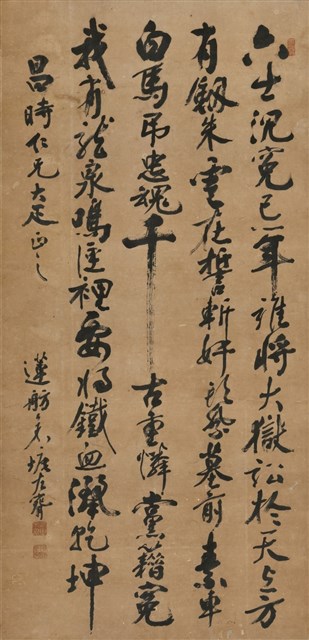 六士沉冤已八年誰將大獄訟於天上方
有釼朱雲在誓斬奸頭祭墓前素車
白馬吊忠魂千古重憐黨籍冤
我有龍泉鳴匣裡要將鐵血濺乾坤
昌時仁兄大正之
蓮舫